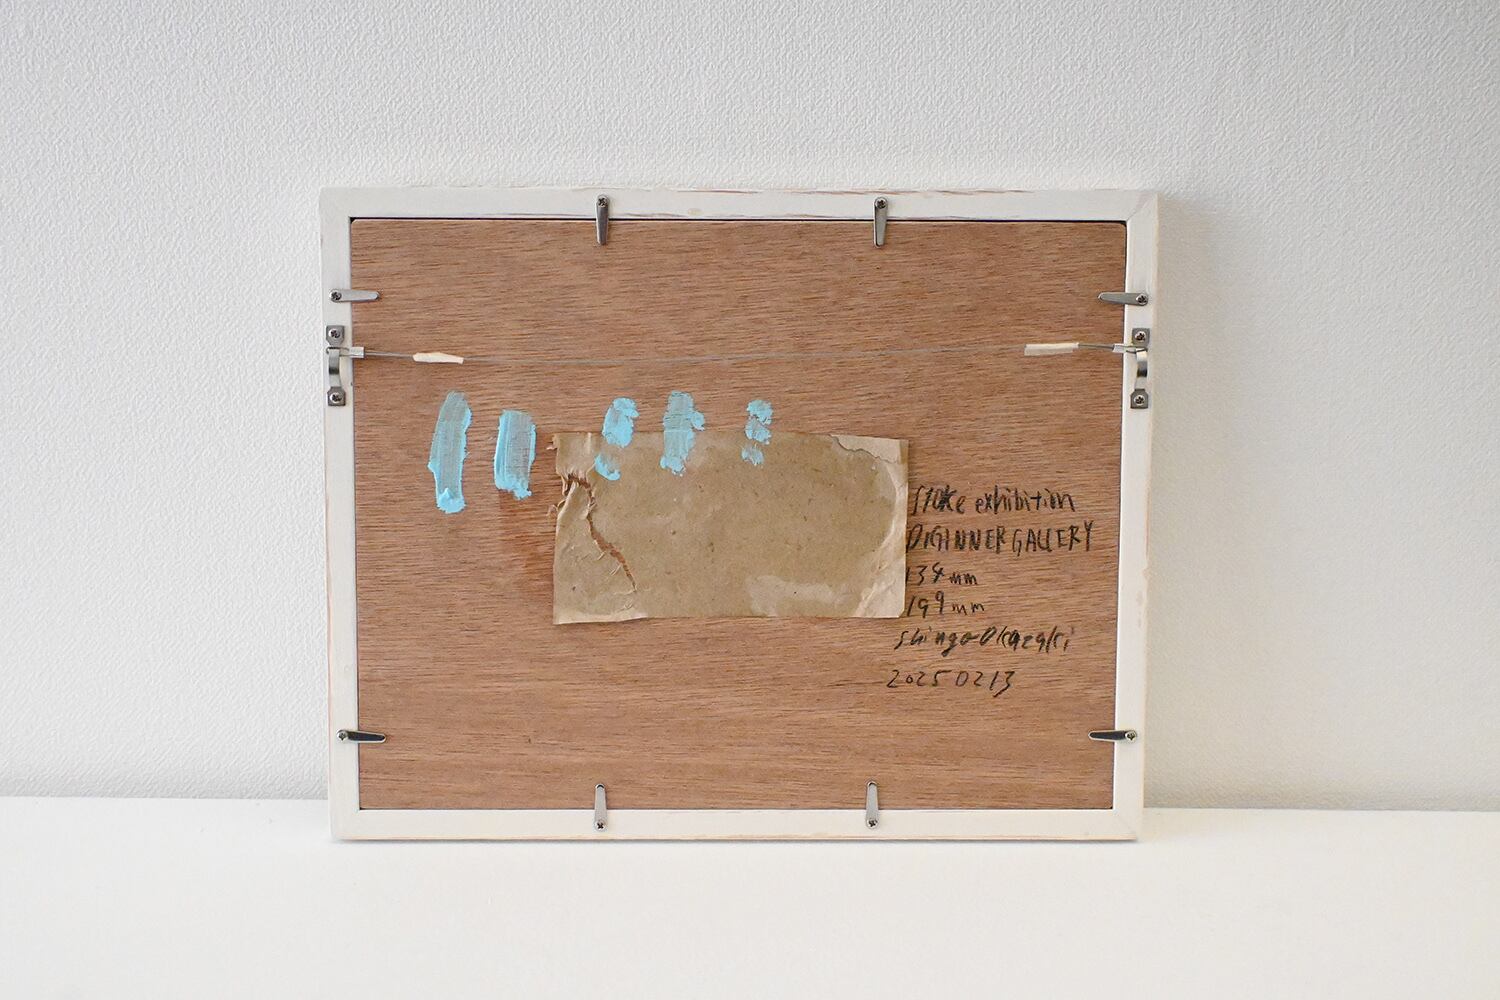 Stoke exhibition
DIGINNER GALLERY
134mm
199mm
shingo Okazaki
20250213